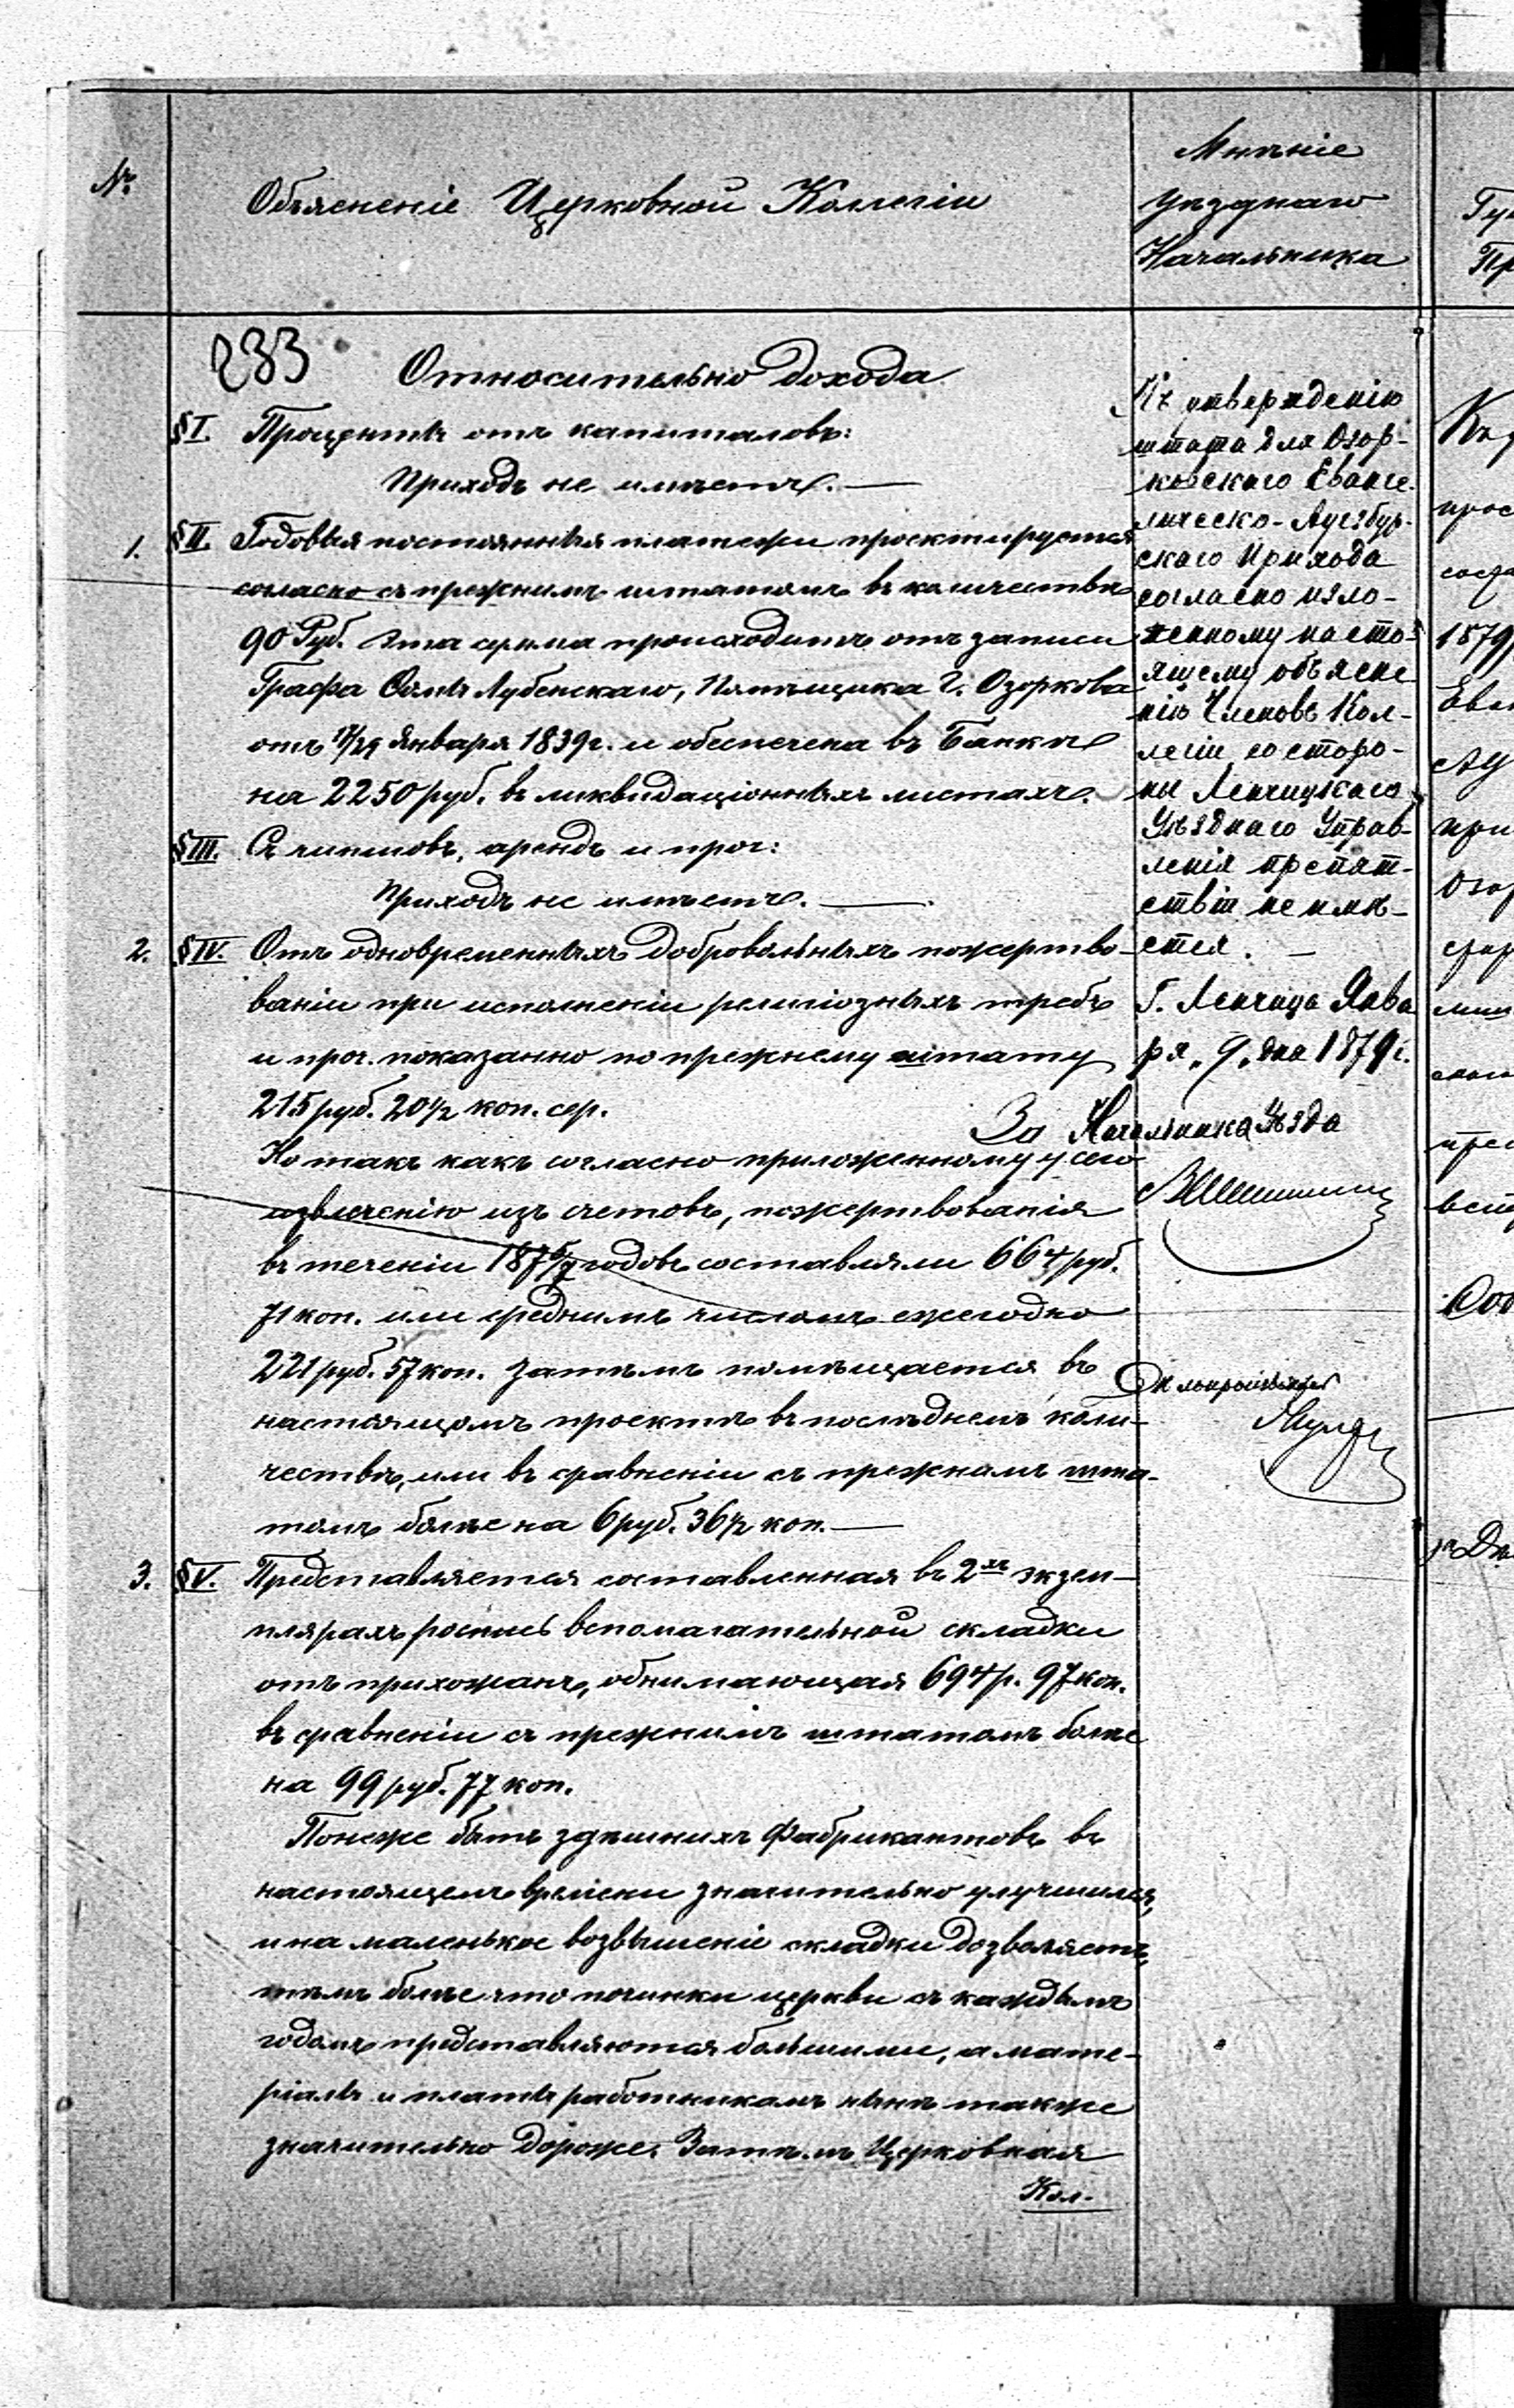 №
Объясненіе Церковной Коллегіи
Мнѣніе
Уѣзднаго
Начальника
233
Относительно дохода
§ I. Проценты отъ капиталовъ:
Приходъ не имѣетъ. —
1. § II. Годовыя постоянныя платежи проектируются
согласно съ прежнимъ штатомъ въ количествѣ
90 Руб. Эта сумма происходитъ отъ записи
Графа Лубенскаго, Помѣщика Г. Озоркова
отъ 17/29 Января 1839 г. и обеспечена въ Банкѣ
на 2250 руб. въ ликвидаціонныхъ листахъ.
§ III. Съ чиншовъ, арендъ и проч:
Приходъ не имѣетъ. —
2. § IV. Отъ одновременныхъ добровольныхъ пожертво-
ваніи при исполненіи религіозныхъ требъ
и проч. показанно по прежнему штату
215 руб. 20½ коп. сер.
Но такъ какъ согласно приложенному у сего
извлеченію изъ счетовъ, пожертвованія
въ теченіи годовъ составляли 664 руб.
71 коп. или среднимъ числомъ ежегодно
221 руб. 57 коп. Затѣмъ помѣщается въ
настоящомъ проектѣ въ послѣднемъ коли-
чествѣ, или въ сравненіи съ прежнимъ шта-
томъ болѣе на 6 руб. 36½ коп. —
3. § V. Представляется составленная въ 2хъ экзем-
плярахъ роспись вспомагательной складки
отъ прихожанъ, обнимающая 694 р. 97 коп.
въ сравненіи съ прежнимъ штатомъ болѣе
на 99 руб. 77 коп.
Понеже бытъ здѣшнихъ Фабрикантовъ въ
настоящемъ времени значительно улучшился,
и на маленькое возвышеніе складки дозволяетъ,
тѣмъ болѣе что починки церкви съ каждымъ
годомъ представляются большими, а мате-
ріалы и платы работникамъ нынѣ также
значительно дороже. Затѣмъ Церковная
Кол-
Къ утвержденію
штата для Озор-
ковскаго Еванге-
лическо-Аугсбур-
скаго Прихода
согласно изло-
женному насто-
ящему объясне-
нію Членовъ Кол-
легіи со сторо-
ны Ленчицкаго
Уѣзднаго Управ-
ленія препят-
ствій не имѣ-
ется. —
Г. Ленчица Янва
ря „9„ дня 1879 г.
За Начальника Уѣзда
Дѣлопроизводитель
1879